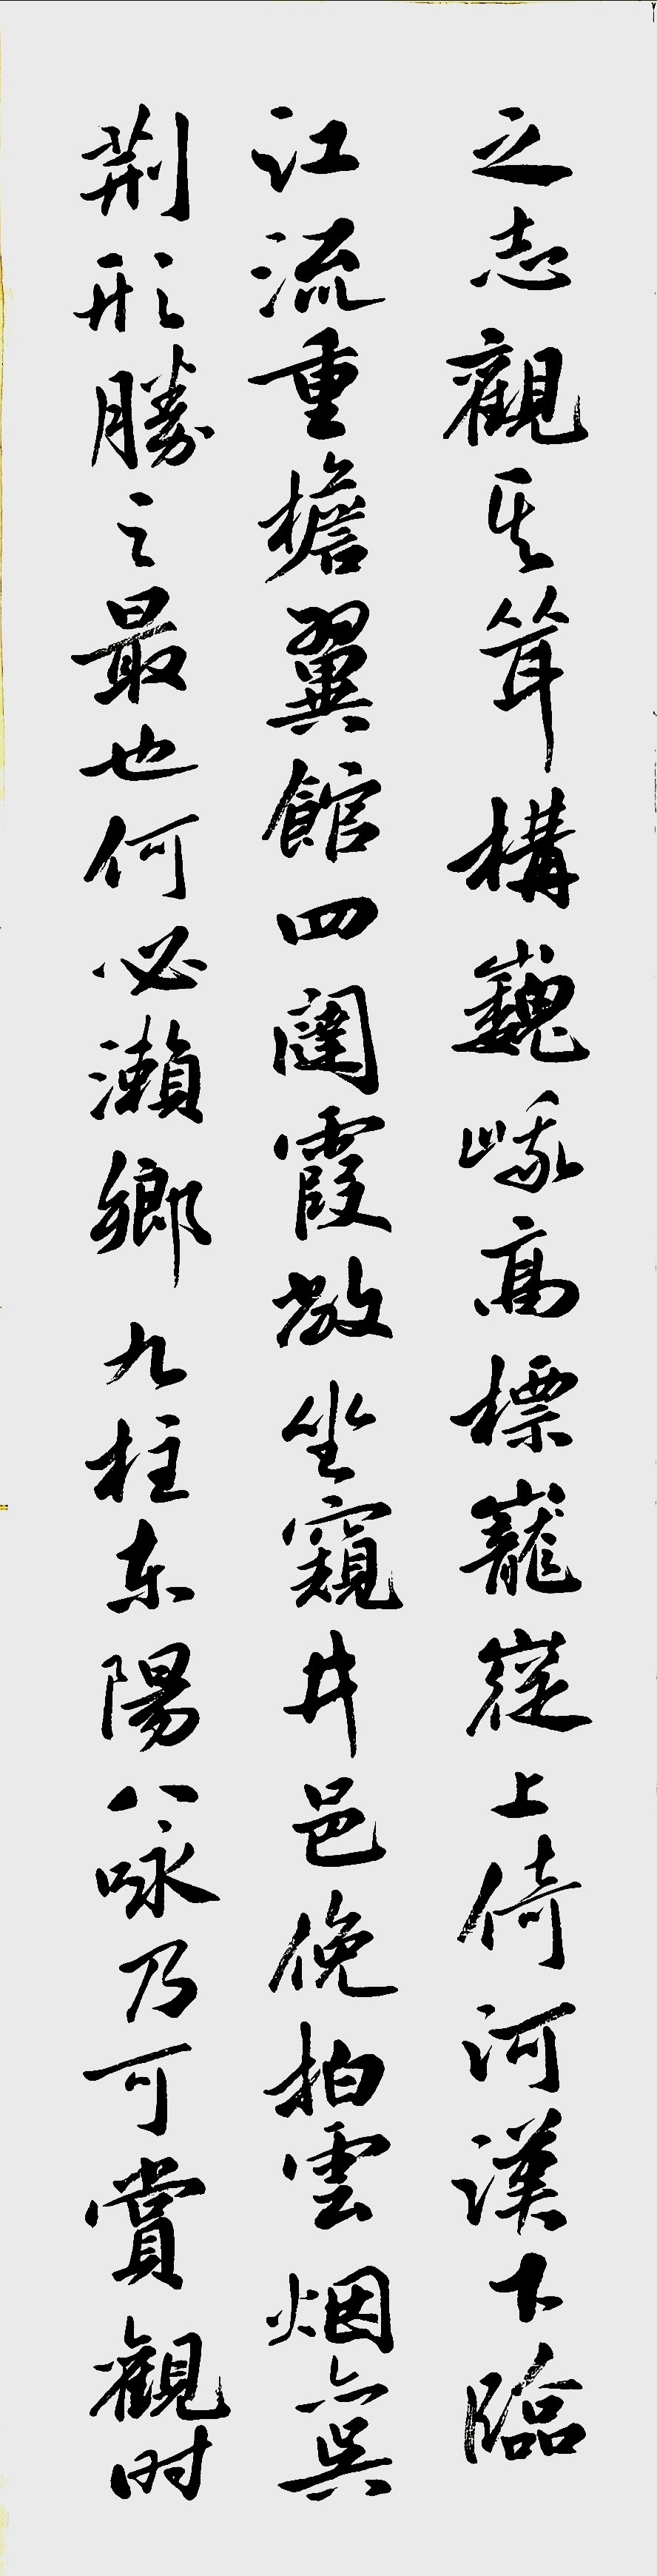 之志觀其聳構巍峨高標巃嵸上倚河漢下臨
江流重檐翼館四闥霞敞坐窺井邑俛拍雲烟亦吳
荆形勝之最也何必瀨鄉九柱東陽八咏乃可賞觀时